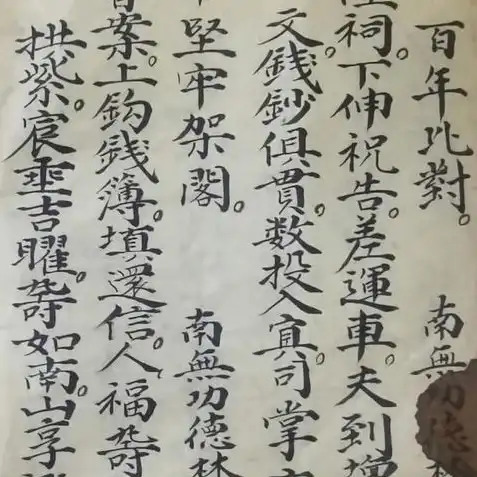 百年比對。 南無功德林
祠。下伸祝告。差運車。夫到
文。錢鈔俱貫。数投入寘司掌
堅牢架閣。 南無功德林
案。上鈎錢簿。填還信。人福夀
拱紫。宸垂吉曜。夀如南。山享